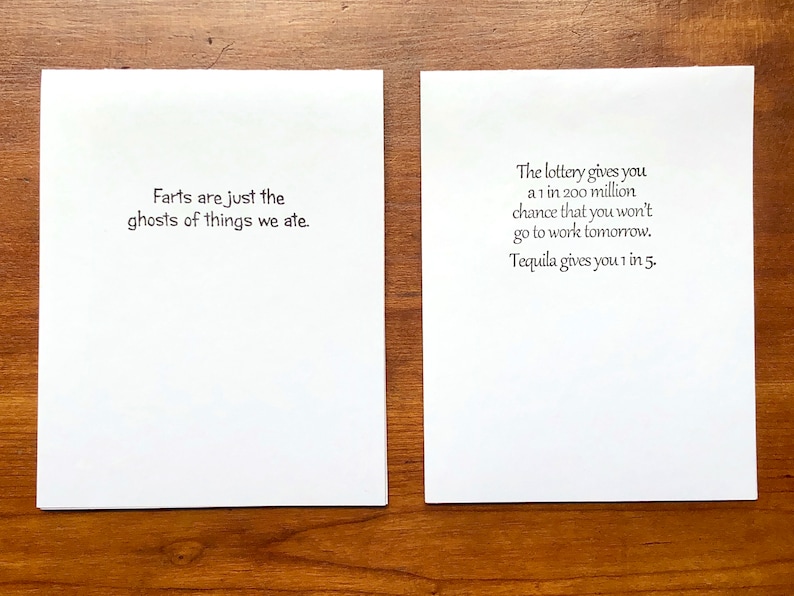 Farts are just the
ghosts of things we ate.
The lottery gives you
a 1 in 200 million
chance that you won't
go to work tomorrow.
Tequila gives you 1 in 5.